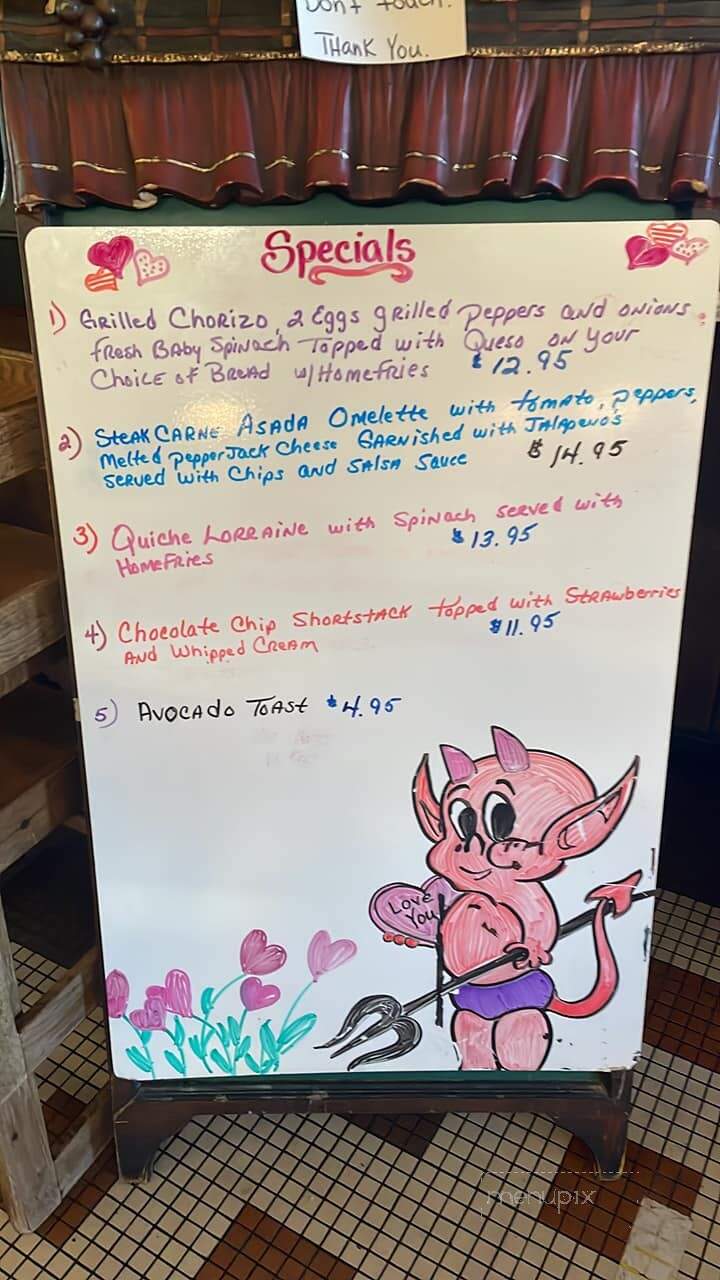 Don't touch.
THank You.
Specials
1) GRilled CHORIZO, 2 Eggs grilled Peppers and ONIONS
fResh BABY SPINACH Topped with Queso ON YOUR
CHOICE OF BREAD w/HomeFRIES $12.95
2) STEAK CARNE ASADA Omelette with tomato, peppers,
Melted PepperJack Cheese GARNished with JALApeno's
SERVED WITH CHIPS AND SALSA SAUCE $14.95
3) Quiche LORRAINE with SPINACH served with
HOMEFRIES $13.95
4) Chocolate Chip SHORTSTACK topped with STRAWberries
AND Whipped CREAM $11.95
5) AVOCADO TOAST $4.95
Love
You
menupix